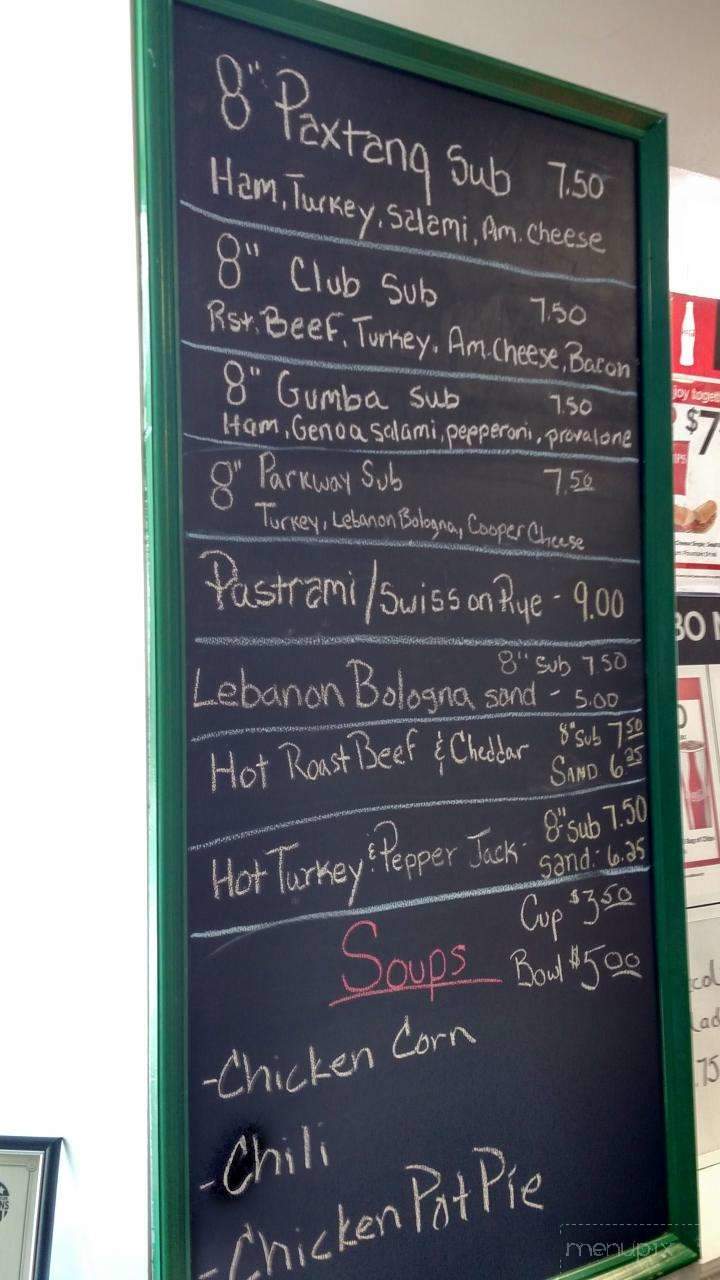 8" Paxtang Sub 7.50
Ham, Turkey, Salami, Am. cheese
8" Club Sub 7.50
Rst. Beef, Turkey, Am. Cheese, Bacon
8" Gumba Sub 7.50
Ham, Genoa salami, pepperoni, provalone
8" Parkway Sub 7.50
Turkey, Lebanon Bologna, Cooper Cheese
Pastrami/Swiss on Rye - 9.00
8" Sub 7.50
Lebanon Bologna sand - 5.00
Hot Roast Beef & Cheddar 8" sub 7.50
SAND 6.25
Hot Turkey & Pepper Jack - 8" sub 7.50
sand: 6.25
Soups Cup $3.50
Bowl $5.00
-Chicken Corn
-Chili
-Chicken Pot Pie
joy toget
$7
menupix